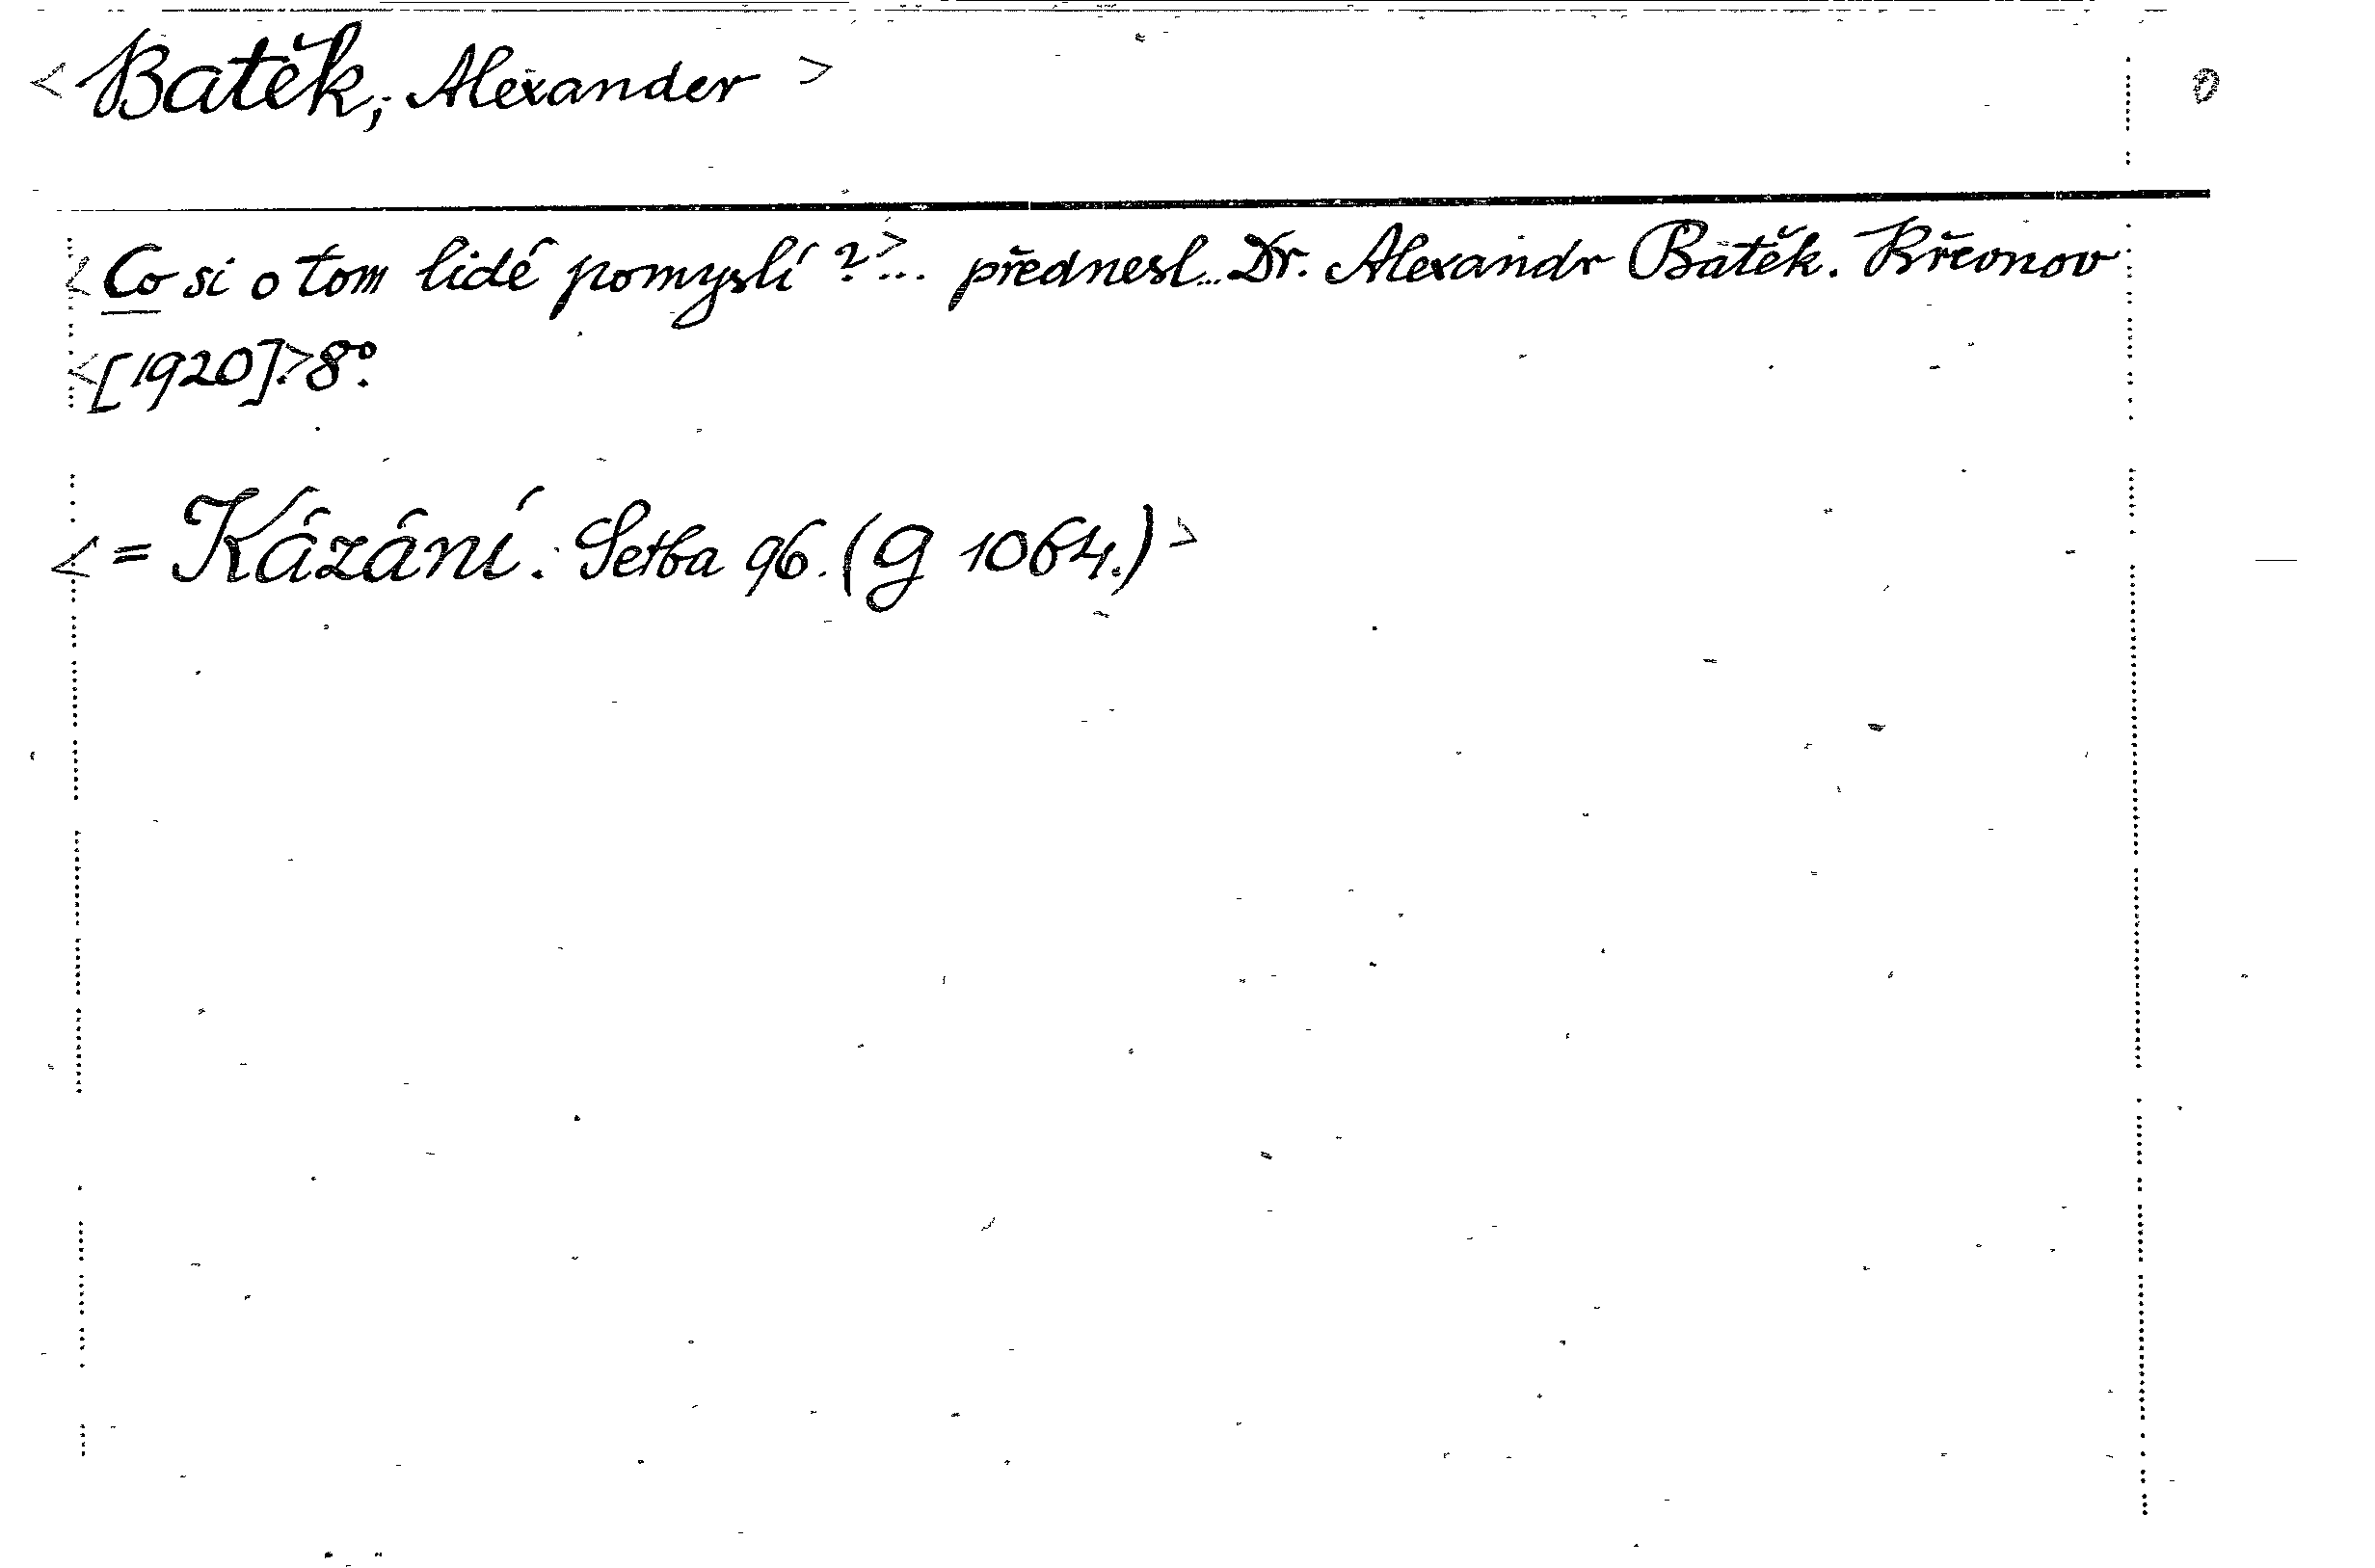 <Batěk, Alexander>
<Co si o tom lidé pomyslí?>... přednesl... Dr. Alexandr Batěk. Křeonov
<[1920].>8°.
<= Kázání. Setba 96. (G 1064.)>